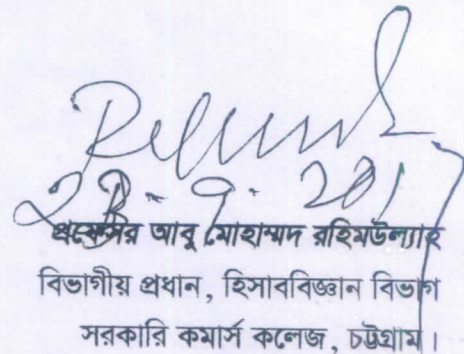 প্রফেসর আবু মোহাম্মদ রহিমউল্যাহ
বিভাগীয় প্রধান, হিসাববিজ্ঞান বিভাগ
সরকারি কমার্স কলেজ, চট্টগ্রাম।